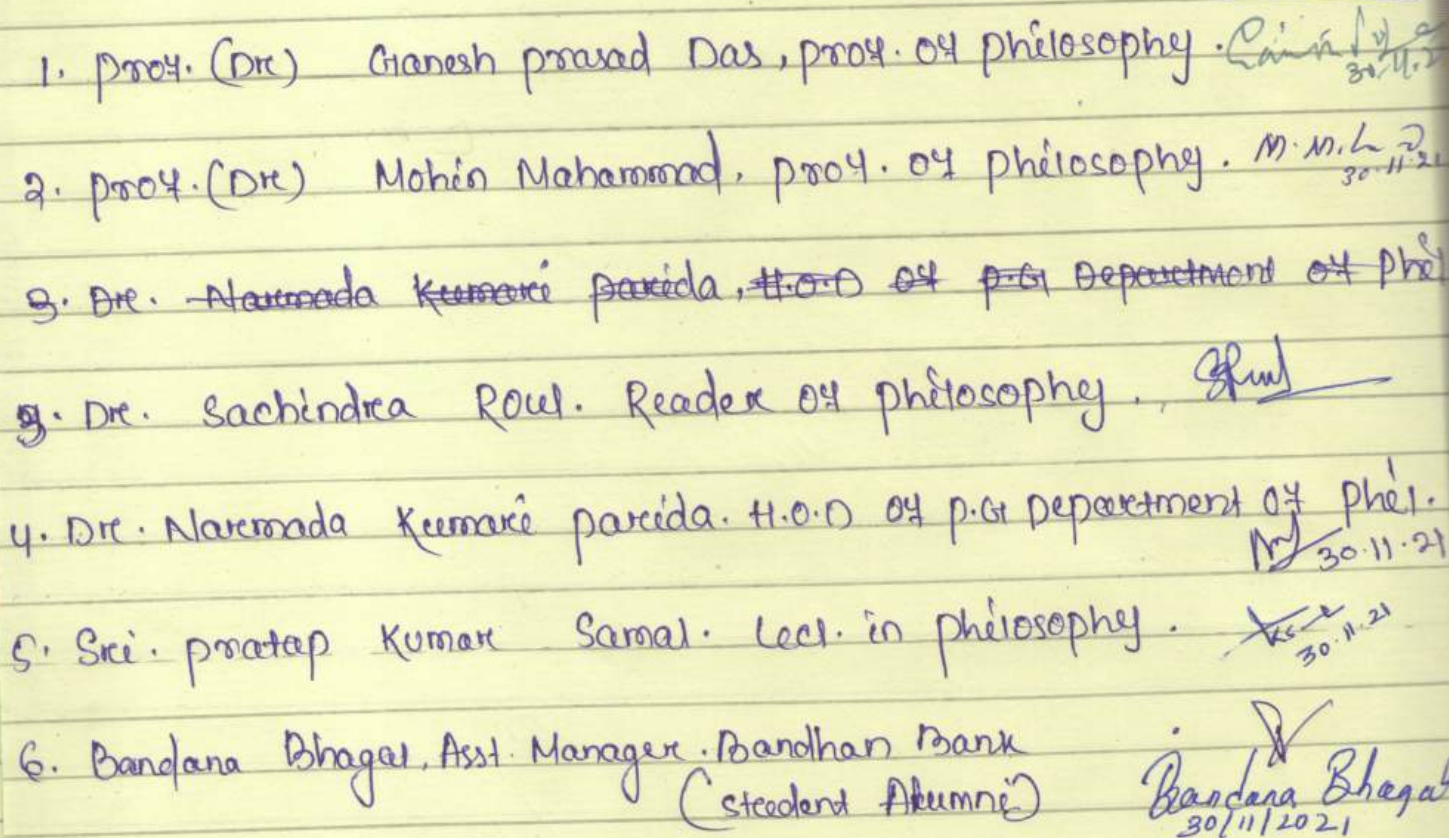 1. Prof. (Dr) Ganesh prasad Das, prof. of philosophy. 30.11.2
2. prof. (Dr) Mohin Mahammad, prof. of philosophy. 30.11.21
3. Dr. Narmada Kumari parida, H.O.D of P.G Department of Phil
3. Dr. Sachindra Roul. Reader of philosophy.
4. Dr. Narmada Kumari parida. H.O.D of P.G Department of Phil.
30.11.21
5. Sri. pratap Kumar Samal. Lect. in philosophy.
30.11.21
6. Bandana Bhagat, Asst. Manager. Bandhan Bank
(student Alumni) Bandana Bhagat
30/11/2021